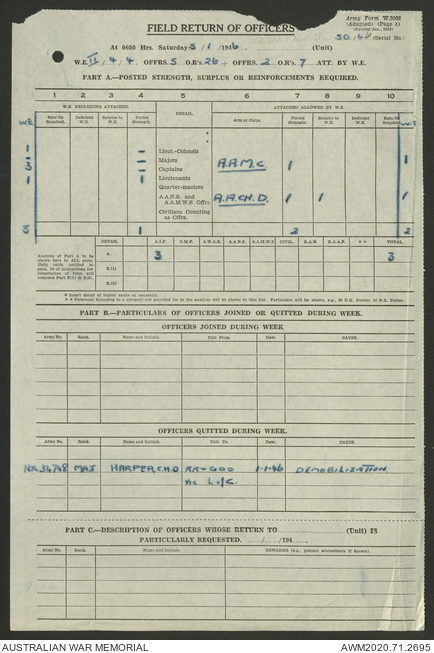 Army Form W.3008
(Adapted) (Page 1)
FIELD RETURN OF OFFICERS
50/46 (Serial No.)
At 0600 Hrs. Saturday 5/1/1946. (Unit)
W.E. II/4/4. OFFRS. 5 .OR's 26 + OFFRS. 2 O.R's. 7 ATT. BY W.E.
PART A.—POSTED STRENGTH, SURPLUS OR REINFORCEMENTS REQUIRED.
1 2 3 4 5 6 7 8 9 10
W.E. EXCLUDING ATTACHED. DETAIL. ATTACHED ALLOWED BY W.E.
W.E. Rein/fts Required. Deficient W.E. Surplus to W.E. Posted Strength. Arm or Corps. Posted Strength. Surplus to W.E. Deficient W.E. Rein/fts Required. W.E.
*
*
1 – Lieut.-Colonels
1 – Majors 1
3 – Captains A.A.M.C. 1 1
1 1 Lieutenants
Quarter-masters
A.A.N.S. and A.A.M.W.S. Offrs. A.A.CH.D. 1 1 1
Civilians Counting as Offrs.
5 1 2 2
DETAIL A.I.F. C.M.F. A.W.A.S. A.A.N.S. A.A.M.W.S. CIVIL. R.A.N. R.A.A.F. * * TOTAL.
Analysis of Part A to be shown here by ALL units. A. 3 3
Only units notified in B.(1)
para. 19 of instructions for compilation of form will complete Part B(1) & B(2). B.(2)
* Insert detail of higher ranks as necessary.
* * Personnel belonging to a category not provided for in the analysis will be shown in this Col. Particulars will be shown, e.g., 20 U.K. Forces; 10 N.Z. Forces.
PART B.—PARTICULARS OF OFFICERS JOINED OR QUITTED DURING WEEK.
OFFICERS JOINED DURING WEEK
Army No. Rank. Name and Initials. Unit From. Date. CAUSE.
OFFICERS QUITTED DURING WEEK.
Army No. Rank. Name and Initials. Unit To. Date. CAUSE.
NX34748 MAJ HARPER, C.H.D RR+GDD 1-1-46 DEMOBILIZATION
Vic L of C.
PART C.—DESCRIPTION OF OFFICERS WHOSE RETURN TO (Unit) IS
PARTICULARLY REQUESTED. / /194
Army No. Rank. Name and Initials. REMARKS (e.g., present whereabouts if known).
AUSTRALIAN WAR MEMORIAL AWM2020.71.2695